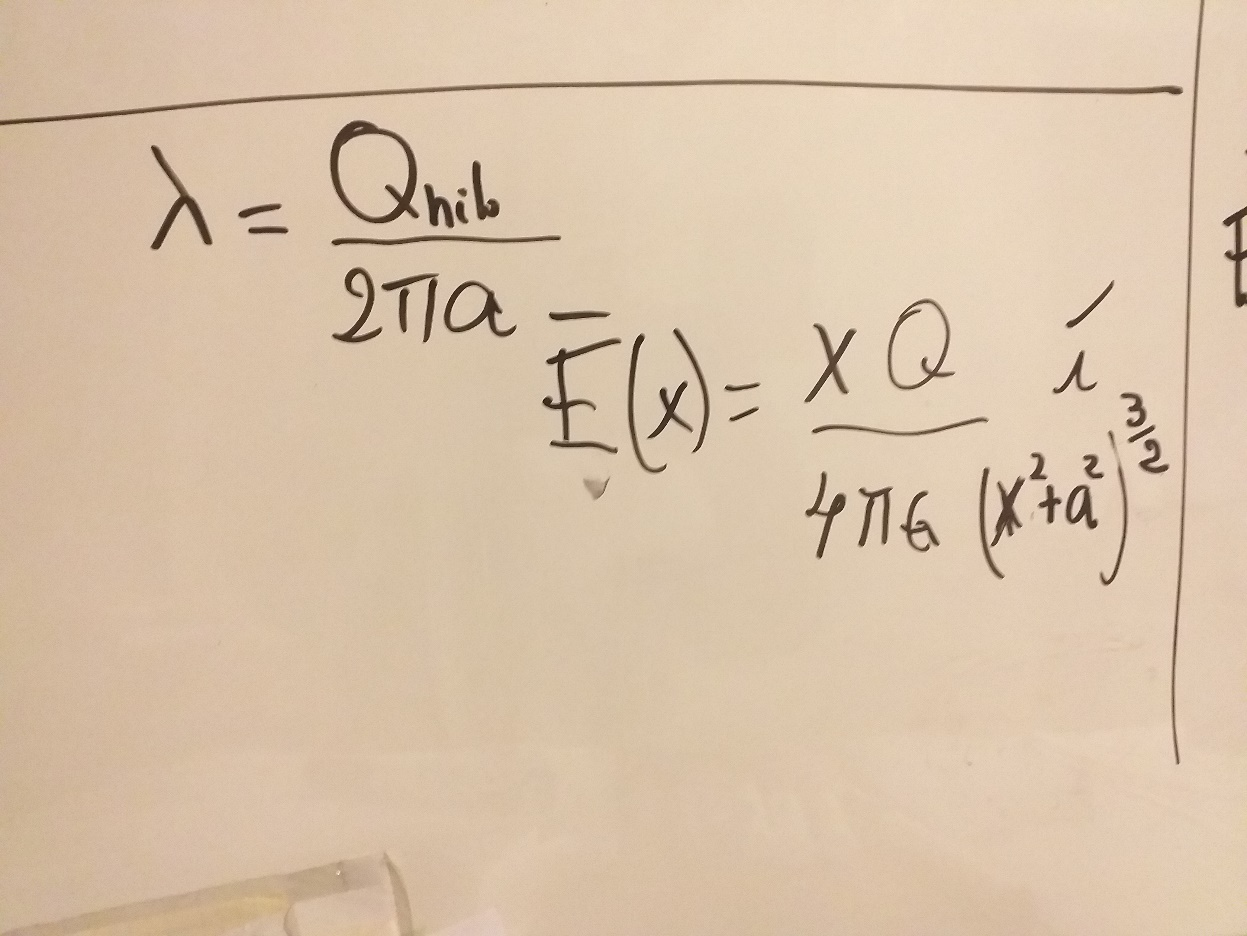 λ = Qnib / 2πa
E̅(x) = x Q / 4πϵ (x²+a²)^{3/2} í